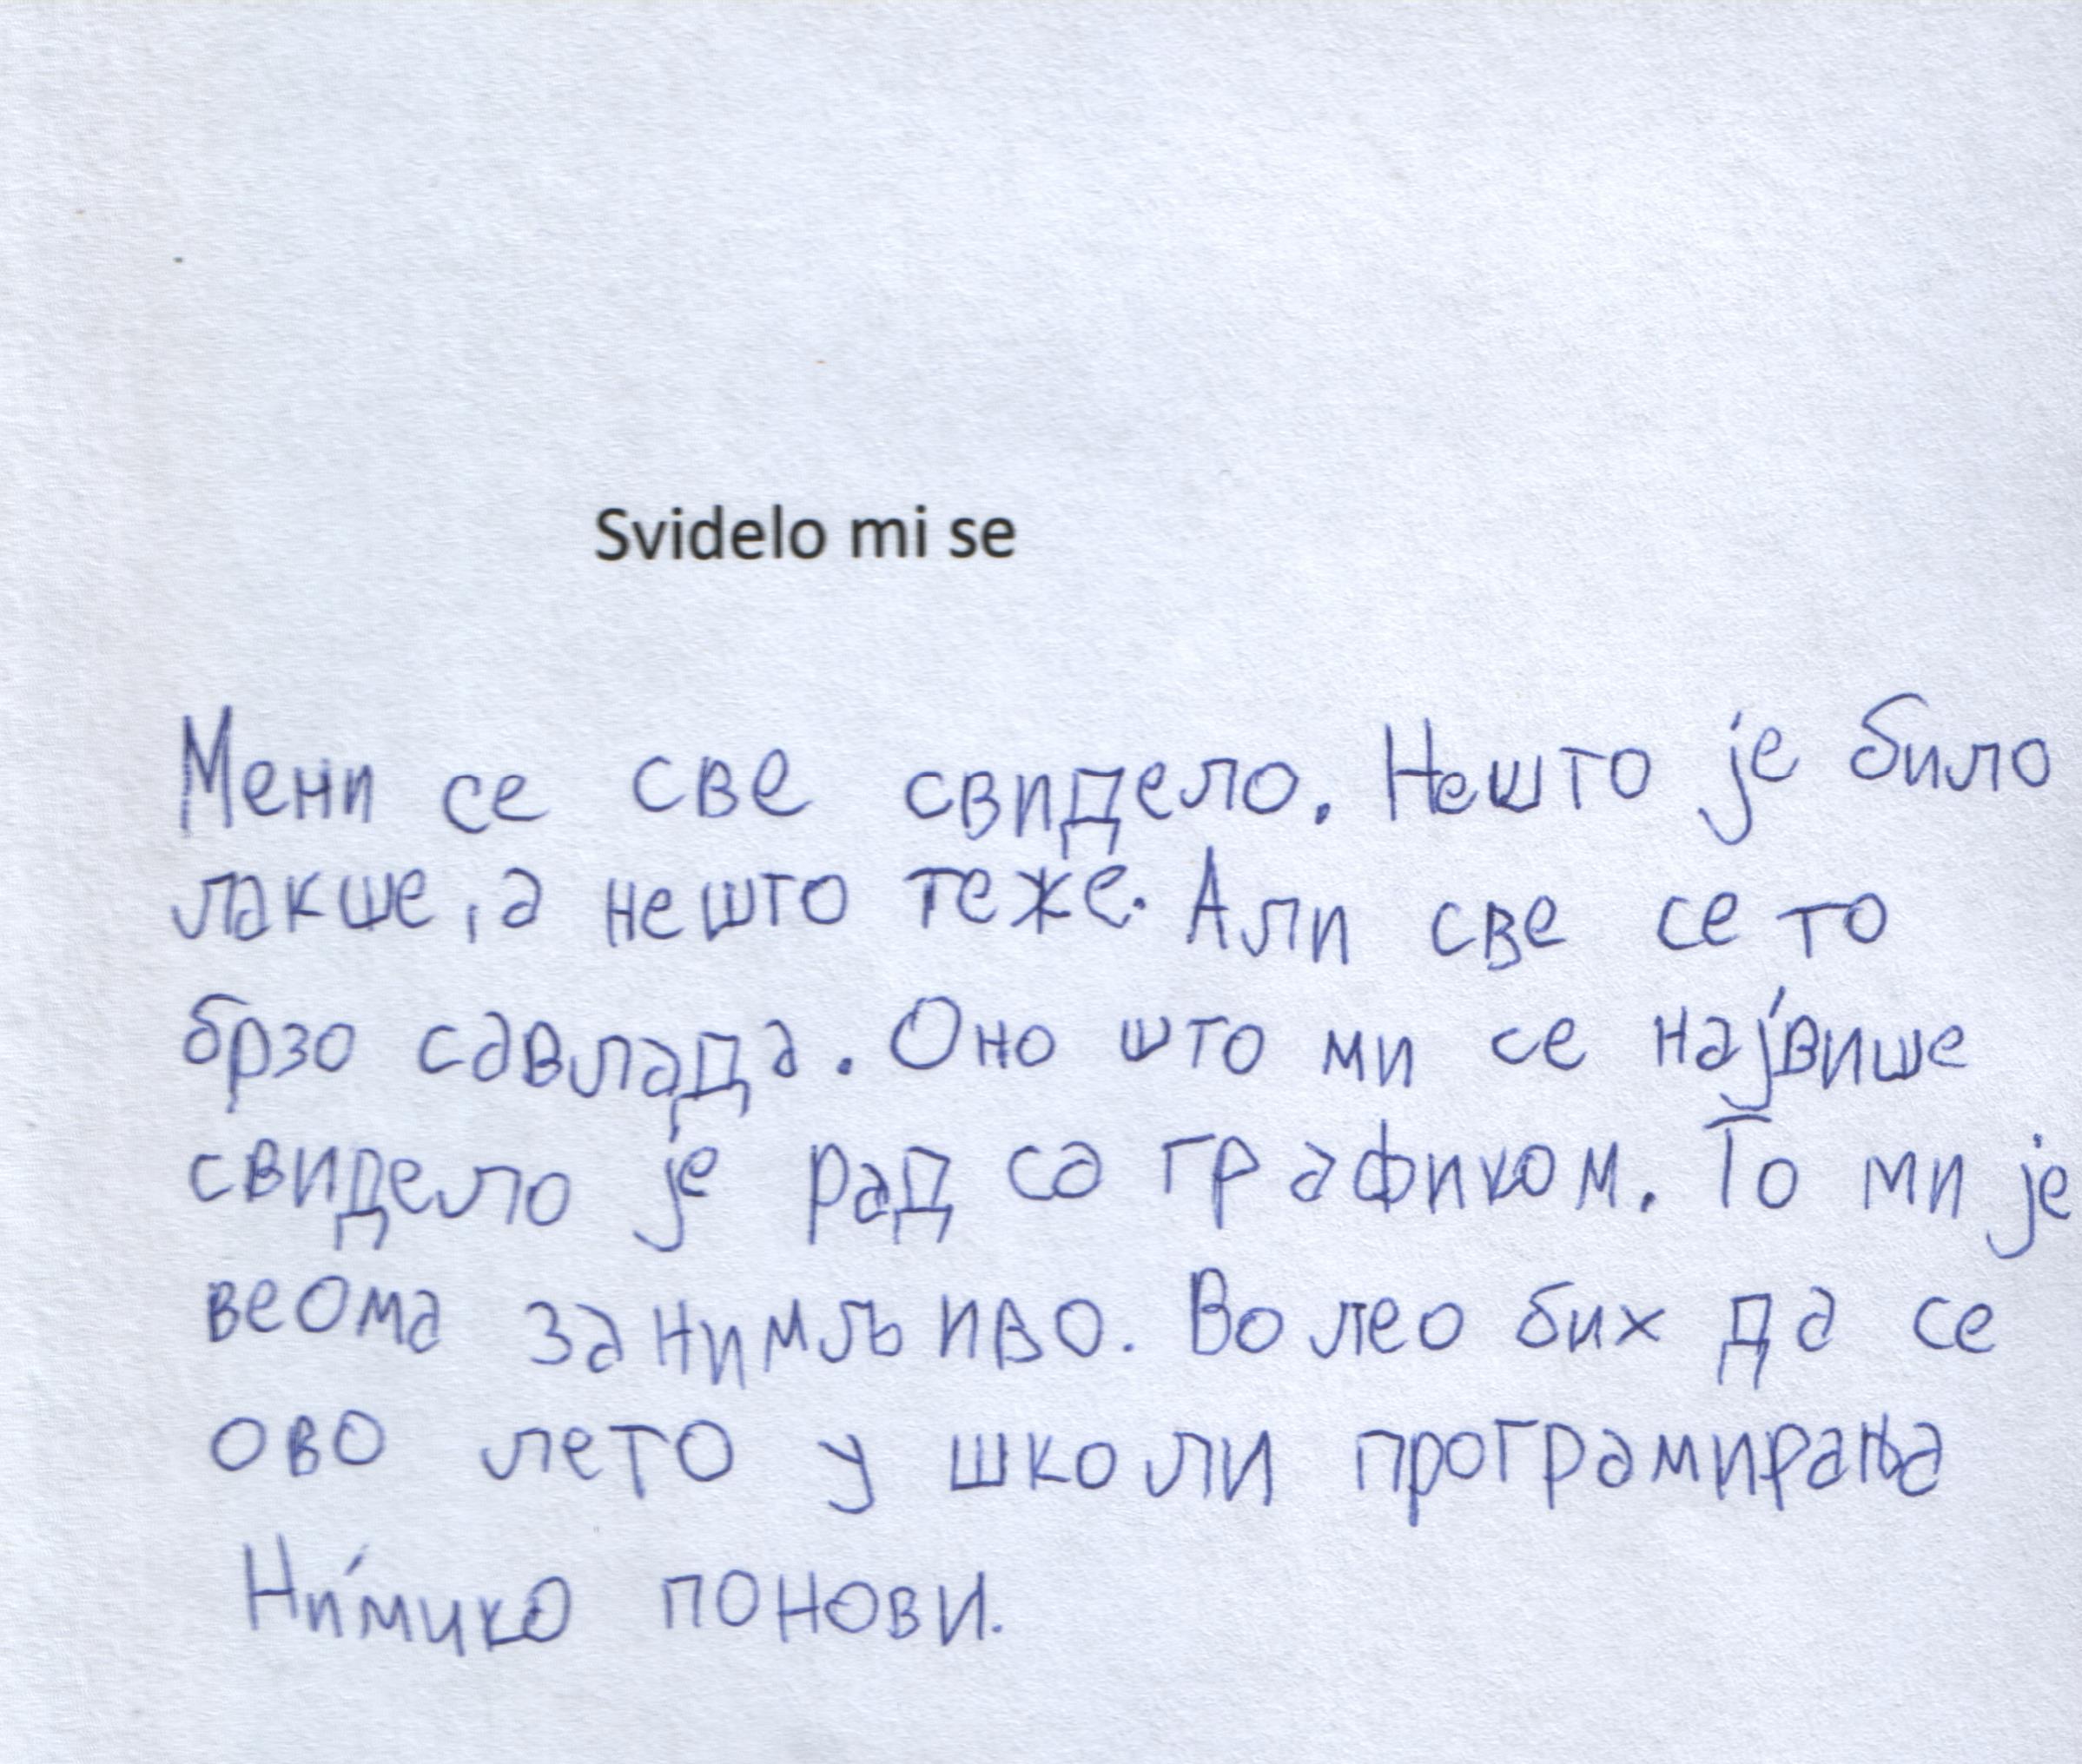 Svidelo mi se
Мени се све свидело. Нешто је било
лакше, а нешто теже. Али све се то
брзо савлада. Оно што ми се највише
свидело је рад са графиком. То ми је
веома занимљиво. Волео бих да се
ово лето у школи програмирања
Нимико понови.